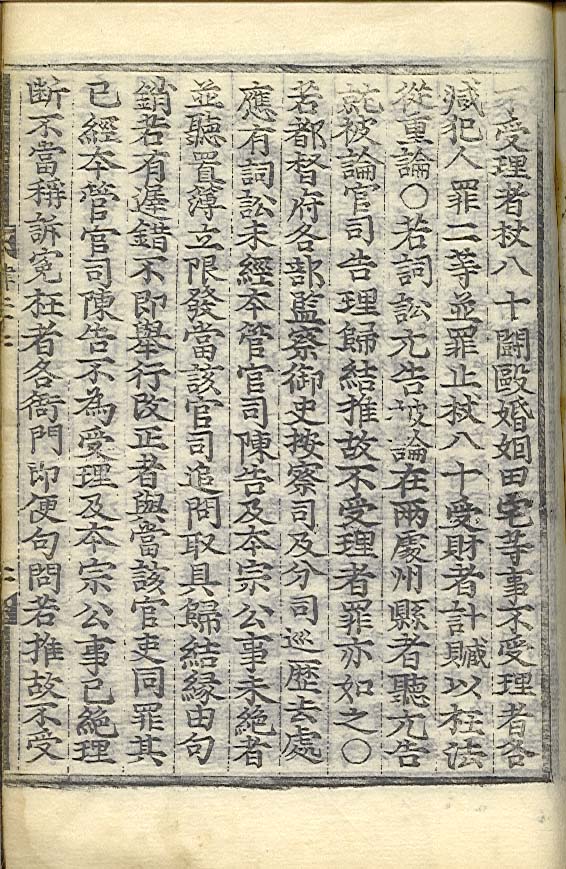 不受理者杖八十鬪毆婚姻田宅等事不受理者各
減犯人罪二等並罪止杖八十受財者計贓以枉法
從重論○若詞訟元告被論在兩處州縣者聽元告
就被論官司告理歸結推故不受理者罪亦如之○
若都督府各部監察御史按察司及分司巡歷去處
應有詞訟未經本管官司陳告及本宗公事未絶者
並聽置簿立限發當該官司追問取具歸結緣由句
銷若有遲錯不即舉行改正者與當該官吏同罪其
已經本管官司陳告不為受理及本宗公事已絶理
斷不當稱訴冤枉者各衙門即便句問若推故不受